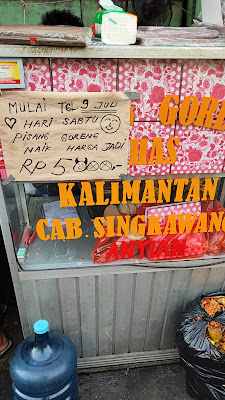 MULAI TGL 9 JULI
♡ HARI SABTU
PISANG GORENG
NAIK HARGA JADI
RP 5000,-
GORE
HAS
KALIMANTAN
CAB. SINGKAWANG
ANTIAM